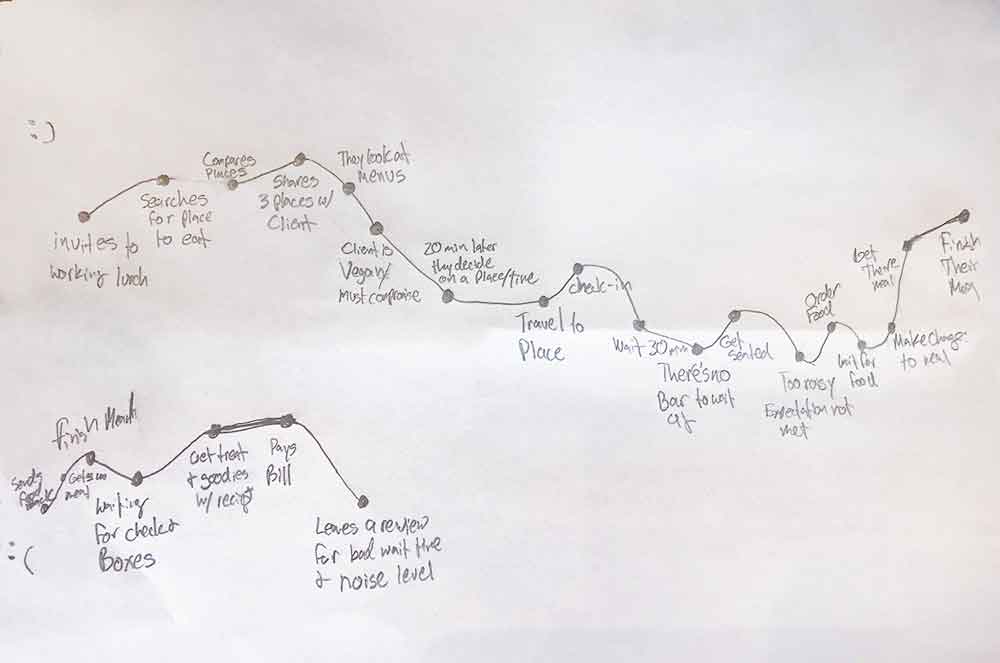 :)
invites to
working lunch
Searches
for place
to eat
Compares
Places
Shares
3 places w/
Client
They look at
Menus
Client is
Vegan/
Must compromise
20 min later
they decide
on a Place/time
Travel to
Place
check-in
Wait 30 min
There's no
Bar to wait
at
Get
seated
Too noisy
Expectation not
met
Order
Food
Wait for
food
Make Change
to meal
Get
There
meal
Finish
Their
Meal
Sends
food
back
Gets
meal
Finish Meal
Waiting
For check &
Boxes
Get treat
& goodies
w/
Pays
Bill
Leaves a review
for bad wait time
& noise level
:(